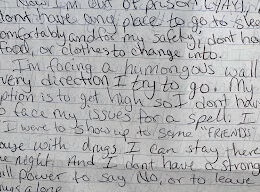 Now I'm out of prison (YAY), I
dont have any place to go to sleep
comfortably and for my safety, dont have
food, or clothes to change into.
I'm facing a humongous wall
every direction I try to go. My
option is to get high so I dont have
to face my issues for a spell. I
I were to show up to some "FRIENDS"
house with drugs I can stay there
the night. And I dont have a strong
will power to say No, or to leave
alone